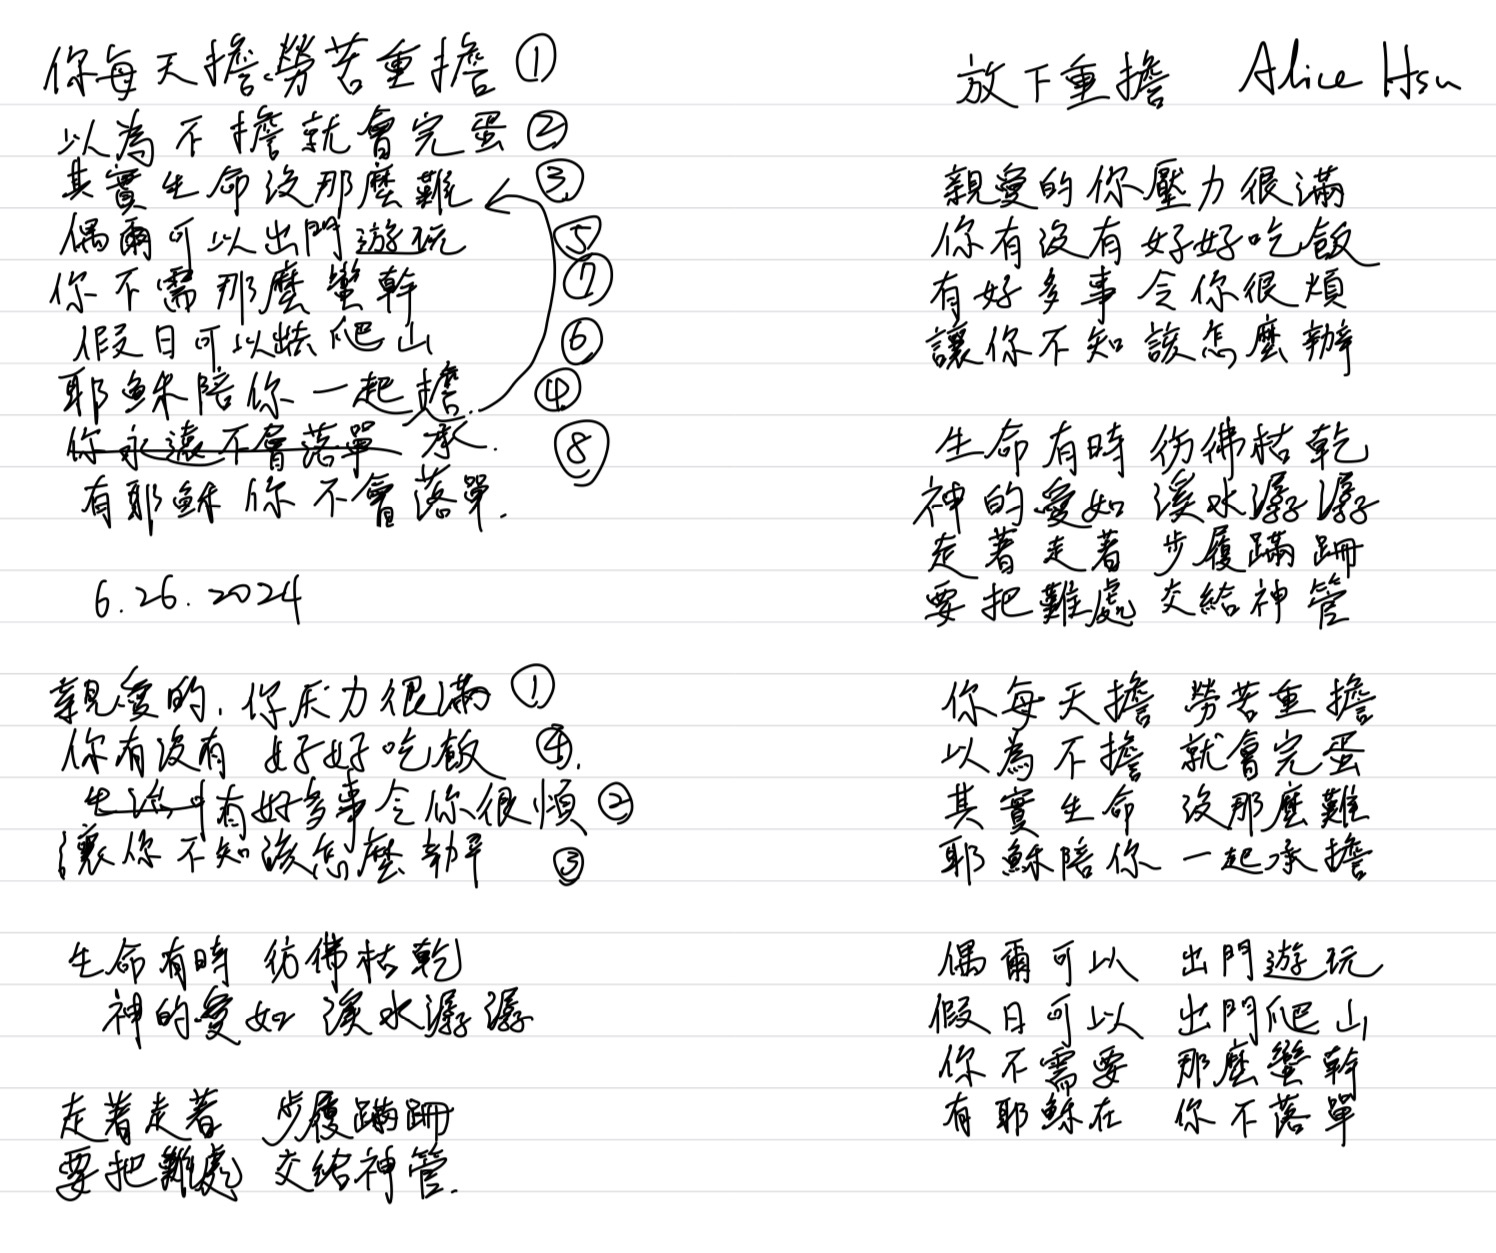 你每天擔勞苦重擔 ①
以為不擔就會完蛋 ②
其實生命沒那麼難 ③
偶爾可以出門遊玩 ⑤
你不需那麼蠻幹 ⑦
假日可以去爬山 ⑥
耶穌陪你一起擔. ④
你永遠不會落單 承. ⑧
有耶穌你不會落單.
6.26.2024
親愛的,你压力很滿 ①
你有沒有 好好吃飯 ④.
生活中有好多事令你很煩 ②
讓你不知該怎麼辦 ③
生命有時 彷彿枯乾
神的愛如 溪水潺潺
走著走著 步履蹣跚
要把難處 交給神管.
放下重擔 Alice Hsu
親愛的你壓力很滿
你有沒有好好吃飯
有好多事令你很煩
讓你不知該怎麼辦
生命有時彷彿枯乾
神的愛如溪水潺潺
走著走著步履蹣跚
要把難處交給神管
你每天擔 勞苦重擔
以為不擔 就會完蛋
其實生命 沒那麼難
耶穌陪你 一起承擔
偶爾可以 出門遊玩
假日可以 出門爬山
你不需要 那麼蠻幹
有耶穌在 你不落單